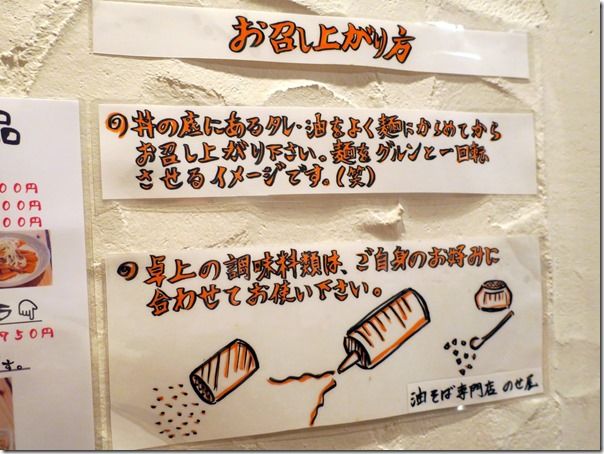 お召し上がり方
丼の底にあるタレ・油をよく麺にからめてから
お召し上がり下さい。麺をグルンと一回転
させるイメージです。(笑)
卓上の調味料類は、ご自身のお好みに
合わせてお使い下さい。
油そば専門店 のせ屋
品
00円
00円
00円
950円
す。